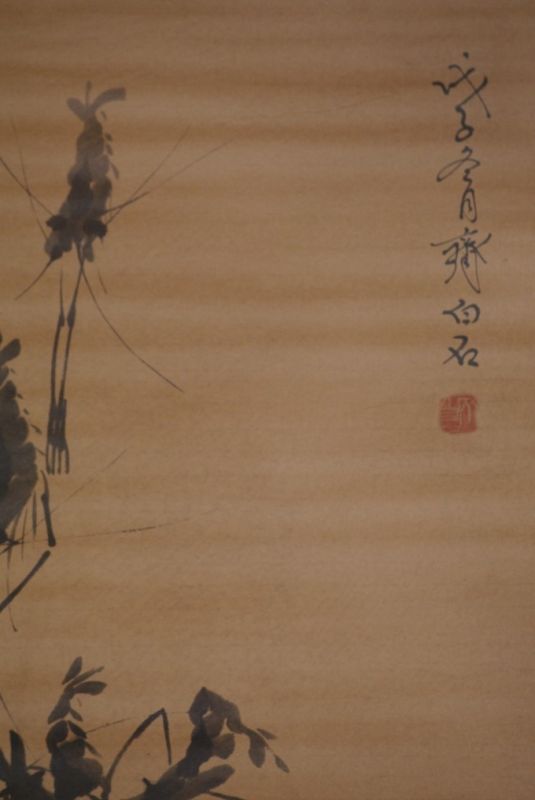 戊子冬月齊白石